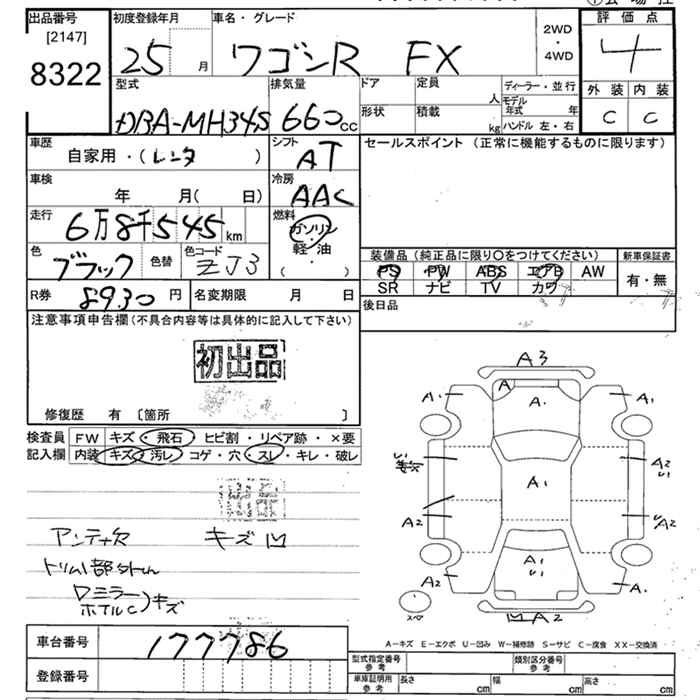 出品番号
[2147]
8322
初度登録年月
25 月
車名・グレード
ワゴンR FX
2WD
・
4WD
評価点
4
外装 内装
C C
型式
DBA-MH34S
排気量
660 cc
ドア
定員
人
形状
積載
kg
ディーラー・並行
モデル年式 年
ハンドル 左・右
車歴
自家用・(レンタ )
シフト
AT
車検
年 月( 日)
冷房
AAC
走行
6万8千545 km
燃料
ガソリン
軽・油
( )
色
ブラック
色替
色コード
ZJ3
R券 8930 円
名変期限 月 日
セールスポイント (正常に機能するものに限ります)
装備品 (純正品に限り○をつけてください)
新車保証書
PS PW ABS エアB AW
SR ナビ TV カワ
有・無
後日品
注意事項申告欄(不具合内容等は具体的に記入して下さい)
初出品
修復歴 有 〔箇所 〕
検査員記入欄
FW キズ・飛石・ヒビ割・リペア跡・×要
内装 キズ・汚レ・コゲ・穴・スレ・キレ・破レ
アンテナ欠 キズ凹
Dミラー
ホイルC)キズ
A3
A1 A A1 A1
A1
A2
A2
A1
A2 A1
凹A2
A-キズ E-エクボ U-凹み W-補修跡 S-サビ C-腐食 XX-交換済
車台番号 177786
登録番号
型式指定番号
参考
類別区分番号
参考
車庫証明用
参考
長さ cm
幅 cm
高さ cm